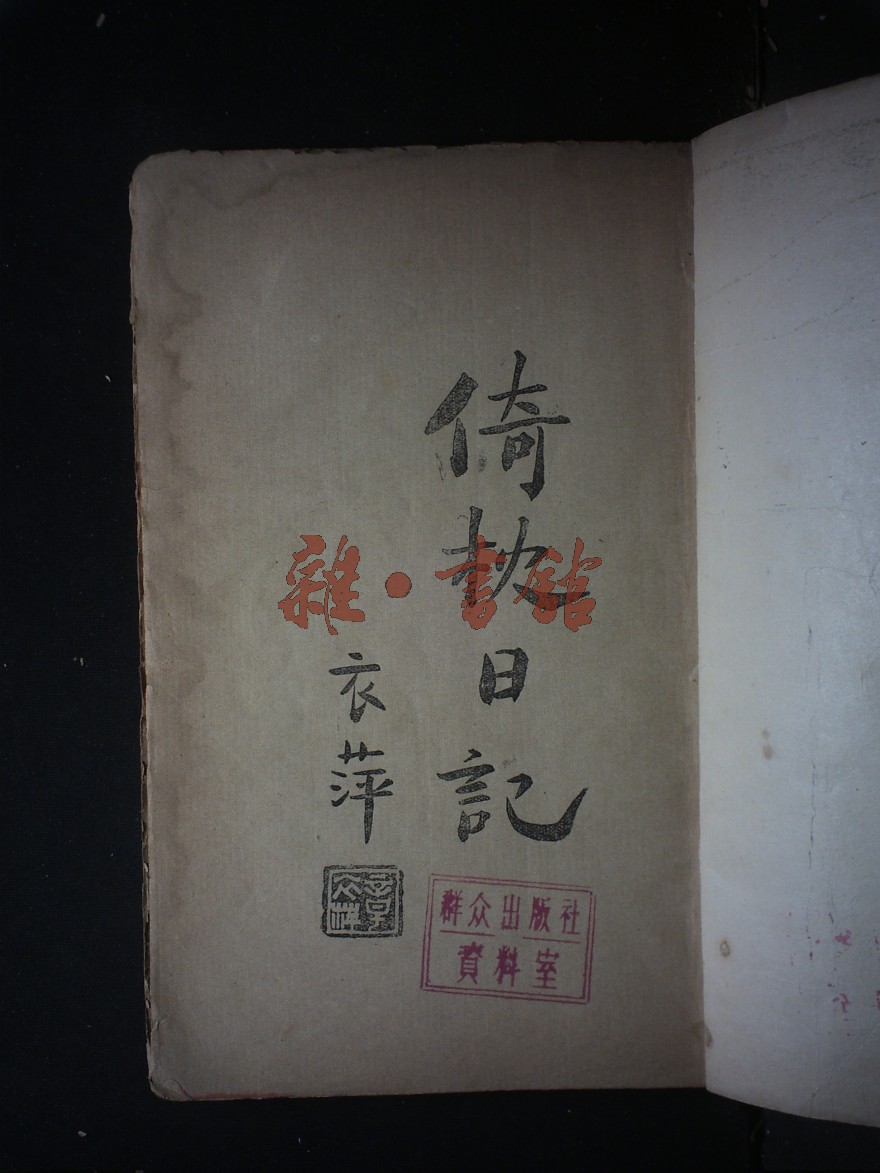 倚枕日記
衣萍
章衣萍
雜·書舘
群众出版社
資料室